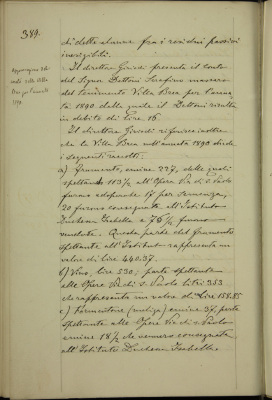 389.
di dette alunne fra i residui passivi
inesigibili.
Approvazione del
conto della Villa
Brea per l'annata
1890
Il direttore Giriodi presenta il conto
del Signor Dattoni Serafino massaro
del tenimento Villa Brea per l'anna
ta 1890 dalla quale il Dattoni risulta
in debito di Lire 16
Il direttore Giriodi riferisce inoltre
che la Villa Brea nell'annata 1890 diede
i seguenti raccolti:
a) frumento, emine 227, delle quali
spettanti 113 1/2 all'Opera Pia di S. Paolo
furono adoperate 17 per semenza,
20 furono consegnate all'Istituto
Duchessa Isabella e 76 1/2 furono
vendute. Questa parte del frumento
spettante all'Istituto rappresenta un
valore di lire 440.37.
b) Vino, lire 530; parte spettante
alle Opere Pie di S. Paolo litri 353
che rappresenta un valore di Lire 158.85
c) Formentone (meliga) emine 37, parte
spettante alle Opere Pie di S. Paolo
emine 18 1/2 che vennero consegnate
all'Istituto Duchessa Isabella